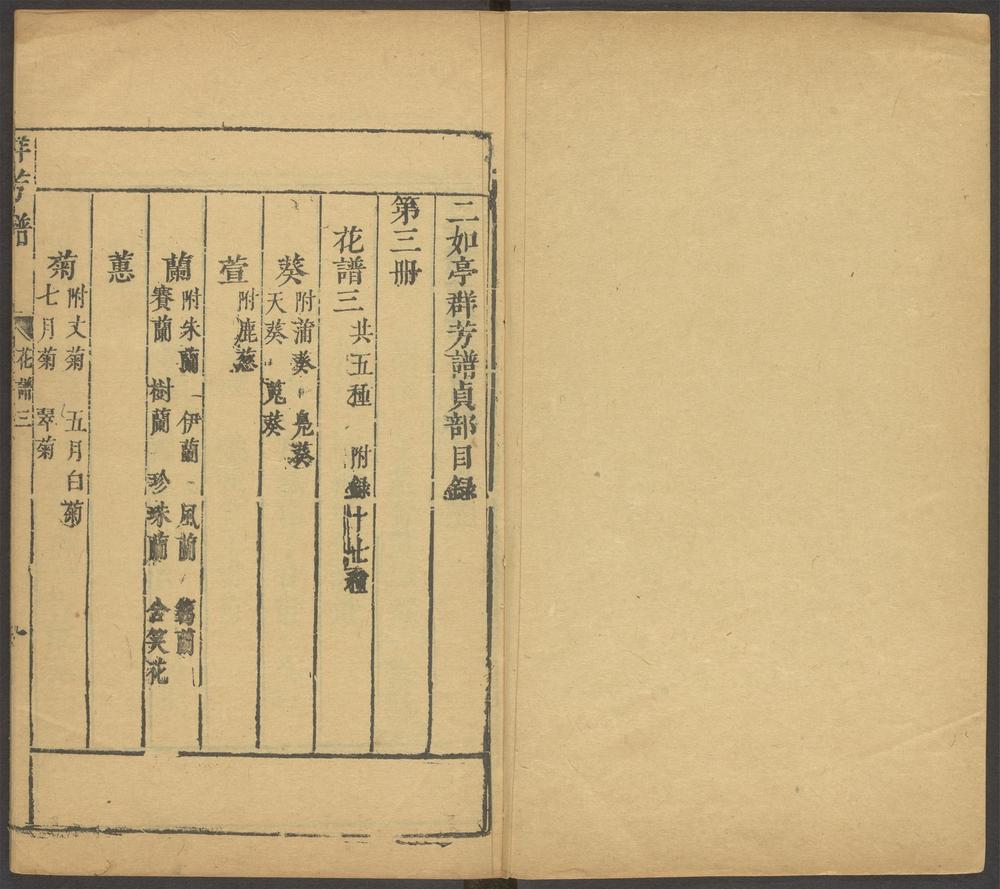 二如亭群芳譜貞部目録
第三册
花譜三 共五種 附録十七種
葵 附蒲葵 鳧葵
天葵 菟葵
萱 附鹿葱
蘭 附朱蘭 伊蘭 風蘭 篛蘭
賽蘭 樹蘭 珍珠蘭 含笑花
蕙
菊 附丈菊 五月白菊
七月菊 翠菊
群芳譜 花譜三